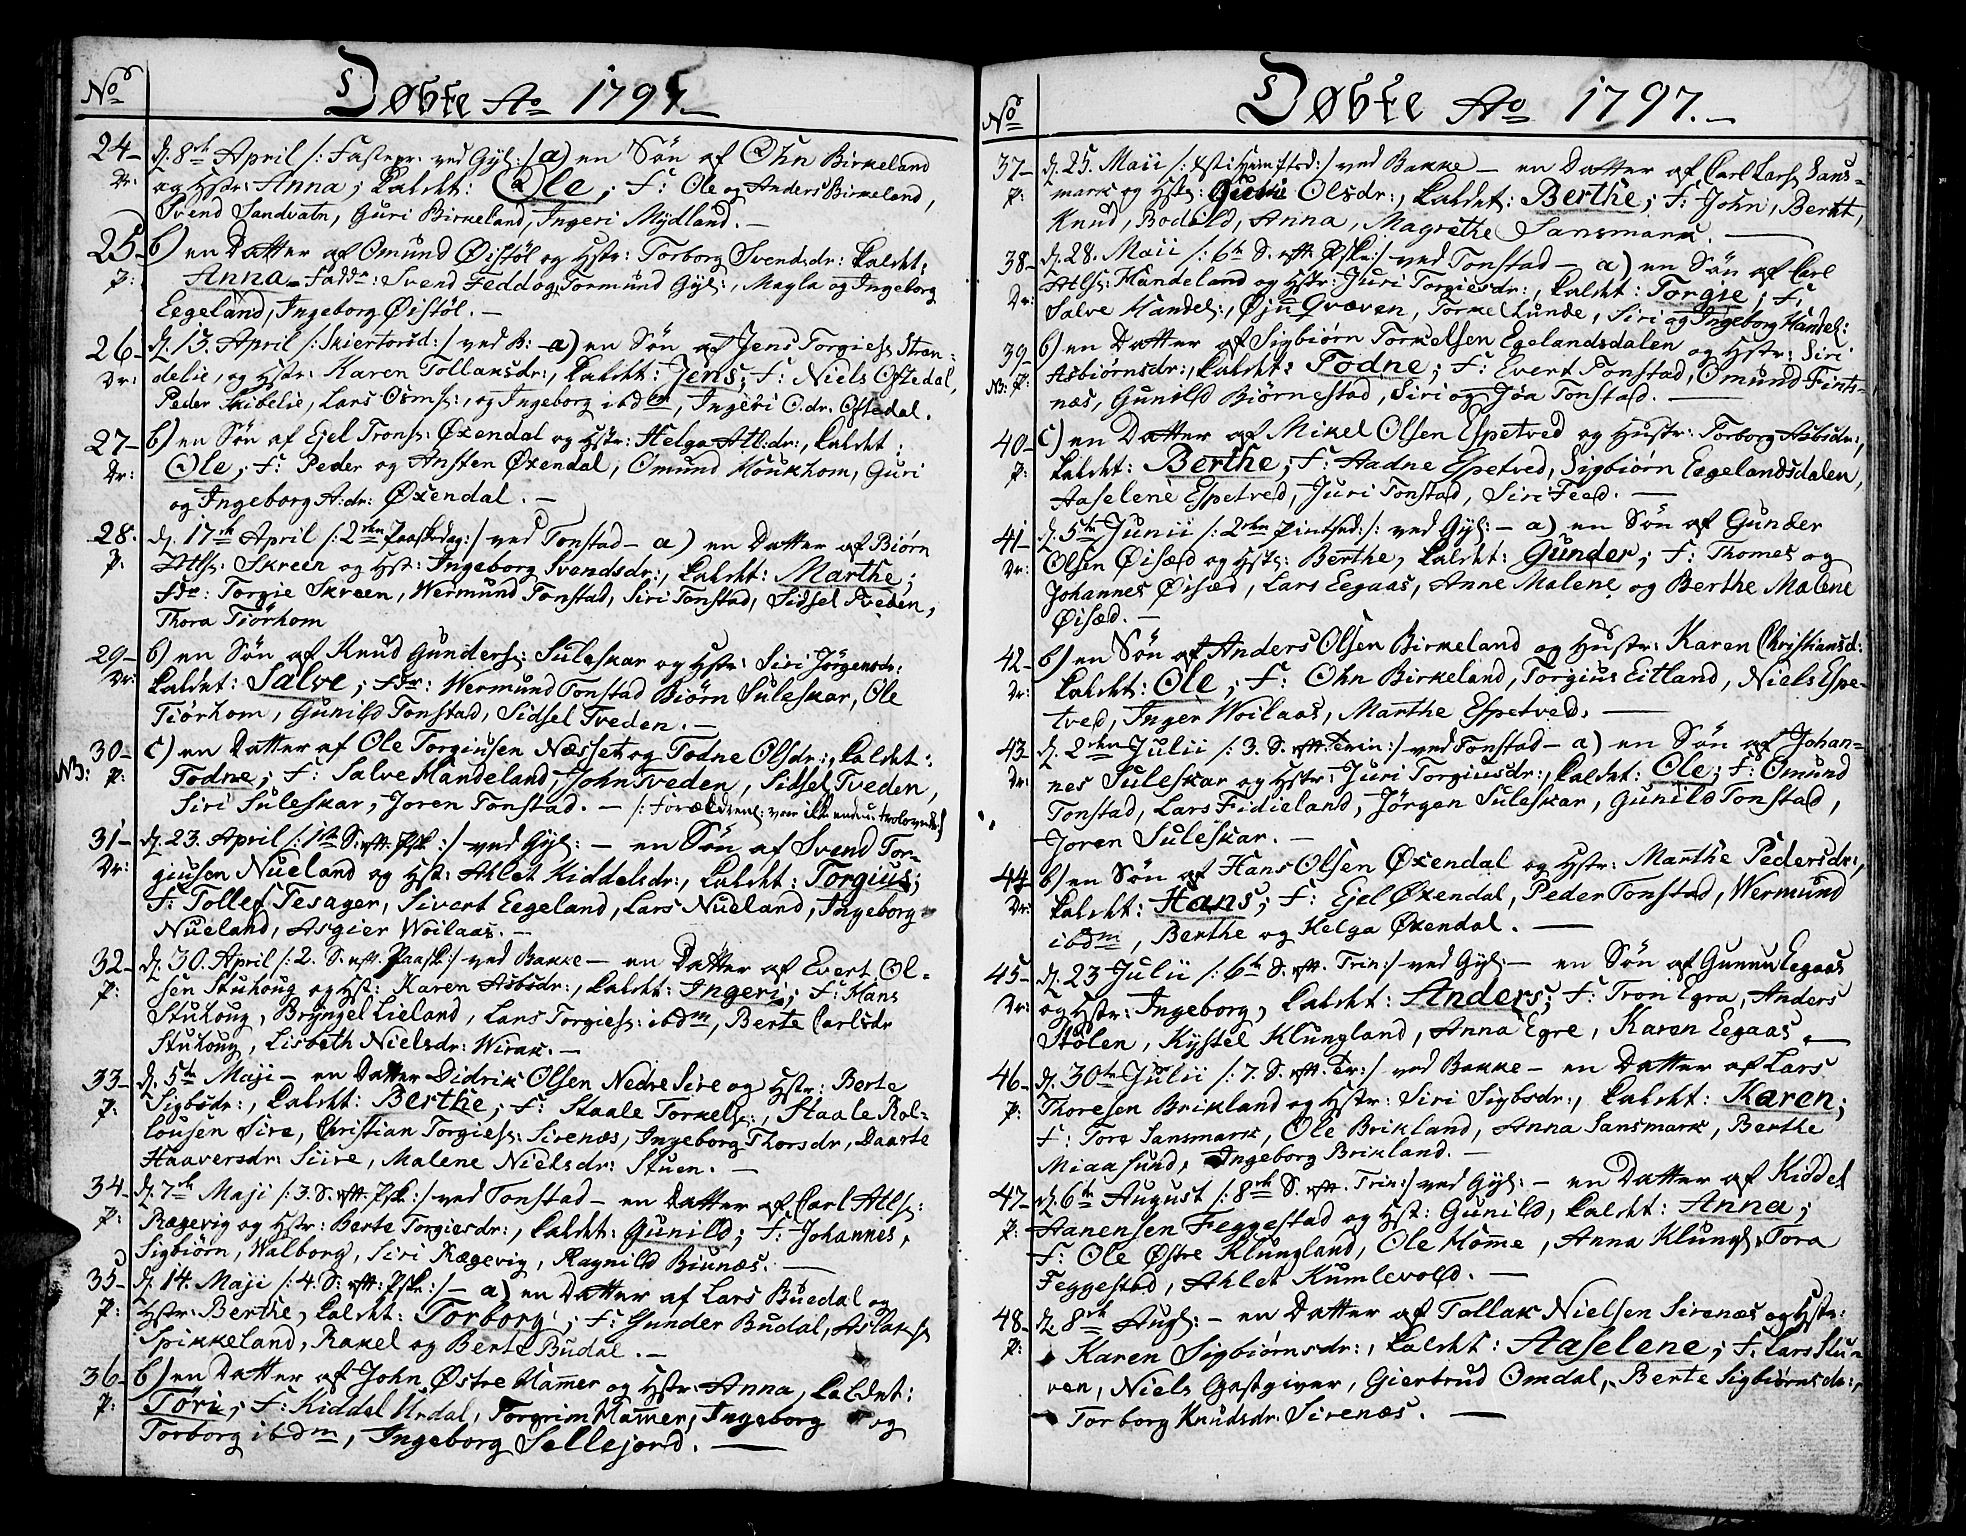 No Døbte Ao 1797.
24 d. 8de April /: Fastepr: ved Gyl: / a) en Søn af Ohn Birkeland
Dr: og Hstr: Anna; kaldet: Ole; F: Ole og Anders Birkeland,
Svend Sandvatn, Guri Birkeland, Ingeri Mydland. —
25 b) en Datter af Omund Øistøl og Hstr: Torborg Svendsdr: kaldet:
p: Anna. Faddr: Svend Fedd og Tormund Gyl:, Magla og Ingeborg
Eegeland, Ingeborg Øistøl. —
26 d. 13. April /: Skiertorsd: / ved B: — a) en Søn af Jens Torgies: Stran-
Dr: delie, og Hstr: Karen Tollaksdr:, kaldet: Jens; F: Niels Oftedal,
Peder Skibelie, Lars Osms:, og Ingeborg ibdm, Ingeri O.dr. Oftedal.
27 b) en Søn af Ejel Trons: Øxendal og Hstr: Helga Atl:dr:, kaldet:
Dr: Ole; F: Peder og Ansten Øxendal, Omund Houkhom, Guri
og Ingeborg A:dr: Øxendal. —
28. d. 17de April /: 2den Paaskedag: / ved Tonstad — a) en Datter af Biørn
p: Atls: Skreen og Hst: Ingeborg Svendsdr:, kaldet: Marthe;
Fdr: Torgie Skreen, Wermund Tonstad, Siri Tonstad, Sidsel Tveden,
Thora Tiørhom
29 b) en Søn af Knud Gunders: Suleskar og Hstr: Siri Jörgensdr:
Dr: kaldet: Salve; Fdr: Wermund Tonstad Biørn Suleskar, Ole
Tiörhom, Gunild Tonstad, Sidsel Tveden. —
30 c) en Datter af Ole Torgiusen Nesset og Todne Olsdr:, kaldet:
NB: p: Todne; F: Salve Handeland, John Tveden, Sidsel Tveden,
Siri Suleskar, Joren Tonstad. — /: Forældrene: vare ikke endnu trolovede:/
31 d. 23. April /: 1ste S. eft. Psk: / ved Gyl: — en Søn af Svend Tor-
Dr: giusen Nueland og Hst: Ahlet Kiddelsdr:, kaldet: Torgius;
F: Tollef Tesager, Sivert Eegeland, Lars Nueland, Ingeborg
Nueland, Asgier Woilaas. —
32 d. 30. April /: 2. S. eft. Paask: / ved Bakke — en Datter af Evert Ol-
p: sen Stuhoug og Hst: Karen Asbsdr:, kaldet: Ingeri; F: Hans
Stuhoug, Bryngel Lieland, Lars Torgies: ibdm, Berte Carlsdr
Stuhoug, Lisbeth Nielsdr: Wirak. —
33 d. 5te Maji — en Datter Didrik Olsen Nedre Sire og Hstr: Berte
p: Sigbsdr:, kaldet: Berthe; F: Staale Torkels:, Staale Rol-
lousen Sire, Christian Torgies: Sirenæs, Ingeborg Thorsdr, Daarte
Haaversdr: Siire, Malene Nielsdr: Stuen. —
34 d. 7de Maji /: 3. S. eft. Psk: / ved Tonstad — en Datter af Carl Atls:
p: Rægevig og Hstr: Berte Torgiesdr:, kaldet: Gunild; F: Johannes,
Sigbiørn, Walborg, Siri Rægevig, Ragnild Biunæs. —
35 d. 14. Maji /: 4. S. eft. Psk: / — a) en Datter af Lars Buedal og
p: Hstr: Berthe, kaldet: Torborg; F: Gunder Budal, Aslak
Spikkeland, Rakel og Berte Budal. —
36 b) en Datter af John Østre Hamer og Hstr: Anna, kaldet:
p: Töri; F: Kiddel Urdal, Torgrim Hamer, Ingeborg og
Torborg ibdm, Ingeborg Sellejord. —
No Døbte Ao 1797. —
37 d. 25. Maii /: Xsti Himlfted: / ved Bakke — en Datter af Carl Lars: Sans-
p: mark og Hstr: Guri Olsdr:, kaldet: Berthe; F: John, Bertet,
Knud, Bodild, Anna, Magrethe Sansmark. —
38 d. 28. Maii /: 6te S. eft. Psk: / ved Tonstad — a) en Søn af Carl
Dr: Atls: Handeland og Hstr: Juri Torgiesdr:, kaldet: Torgie; F:
Salve Handel:, Øju Qvæven, Torkel Lunde, Siri og Ingeborg Handel:
39 b) en Datter af Sigbiørn Torkelsen Egelandsdalen og Hstr: Siri
NB: p: Asbiørnsdr:, kaldet: Todne; F: Evert Tonstad, Omund Fints-
næs, Gunild Biörnestad, Siri og Jóa Tonstad. —
40 c) en Datter af Mikel Olsen Espetved og Hustr: Torborg Asbsdr:,
p: kaldet: Berthe; F: Aadne Espetved, Sigbiørn Eegelandsdalen,
Aaselene Espetved, Juri Tonstad, Siri Feed. —
41 d. 5te Junii /: 2den Pintsed: /: ved Gyl: — a) en Søn af Gunder
Dr: Olsen Øisæd og Hstr: Berthe, kaldet: Gunder; F: Thomes og
Johannes Øisæd, Lars Eegaas, Anne Malene og Berthe Malene
Øisæd. —
42 b) en Søn af Anders Olsen Birkeland og Hustr: Karen Christiansd:
Dr: kaldet: Ole; F: Ohn Birkeland, Torgius Eitland, Niels Espe-
tved, Inger Woilaas, Marthe Espetved. —
43 d. 2den Julii /: 3. S. eft. Trin: / ved Tonstad — a) en Søn af Johan-
Dr: nes Suleskar og Hstr: Juri Torgiusdr:, kaldet: Ole; F: Omund
Tonstad, Lars Fidieland, Jörgen Suleskar, Gunild Tonstad,
Joren Suleskar. —
44 b) en Søn af Hans Olsen Øxendal og Hstr: Marthe Pedersdr:,
Dr: kaldet: Hans; F: Ejel Øxendal, Peder Tonstad, Wermund
ibdm, Berthe og Helga Øxendal. —
45 d. 23 Julii /: 6te S. eft. Trin: / ved Gyl: — en Søn af Gunnu Eegaas
Dr: og Hstr: Ingeborg, kaldet: Anders; F: Tron Egra, Anders
Stölen, Kystel Klungland, Anna Egre, Karen Eegaas. —
46 d. 30te Julii /: 7. S. eft. Tr: / ved Bakke — en Datter af Lars
p: Thoresen Brikland og Hstr: Siri Sigbsdr:, kaldet: Karen;
F: Tore Sansmark, Ole Brikland, Anna Sansmark, Berthe
Miaasund, Ingeborg Brikland. —
47 d. 6te August /: 8de S. eft. Trin: / ved Gyl: — en Datter af Kiddel
p: Aanensen Feggestad og Hst: Gunild, kaldet: Anna;
F: Ole Østre Klungland, Ole Home, Anna Klungl: Tora
Feggestad, Ahlet Kumlevold. —
48 d. 8de Augt: — en Datter af Tollak Nielsen Sirenæs og Hstr:
p: Karen Sigbiørnsdr:, kaldet: Aaselene; F: Lars Stu-
ven, Niels Gastgiver, Giertrud Omdal, Berte Sigbiørnsdr:,
Torborg Knudsdr: Sirenæs. —